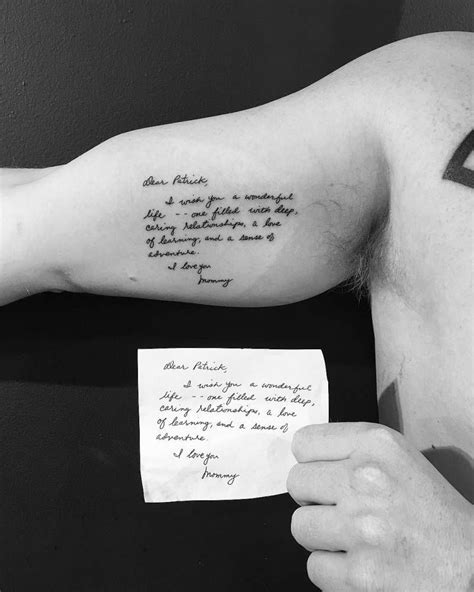 Dear Patrick,
I wish you a wonderful
life -- one filled with deep,
caring relationships, a love
of learning, and a sense of
adventure.
I love you
Mommy
Dear Patrick,
I wish you a wonderful
life -- one filled with deep,
caring relationships, a love
of learning, and a sense of
adventure.
I love you
Mommy